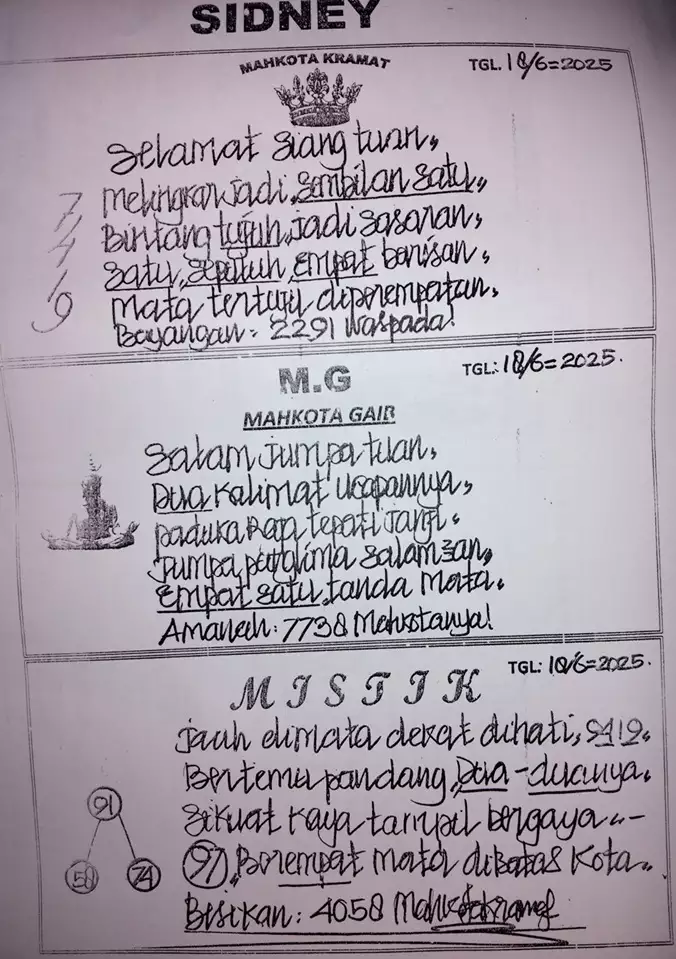 SIDNEY
MAHKOTA KRAMAT
TGL. 18/6=2025
Selamat siang tuan,
Melingkar jadi, sembilan satu,
7, Bintang tujuh, jadi sasaran,
4 satu, sepuluh, empat barisan,
1
9 Mata tertuju diperempatan,
Bayangan: 2291 Waspada!
M.G
TGL: 18/6=2025.
MAHKOTA GAIB
Salam jumpa tuan,
Dua kalimat ucapannya,
paduka Raja tepati janji,
Jumpa panglima salaman,
Empat satu, tanda mata.
Amanah: 7738 Mahkotanya!
MISTIK
TGL: 18/6=2025.
jauh dimata dekat dihati, 9419.
Bertemu pandang, Dua-duanya.
91
sikuat kaya tampil bergaya..-
58 74
97 Berempat mata dibatas kota..
Bisikan: 4058